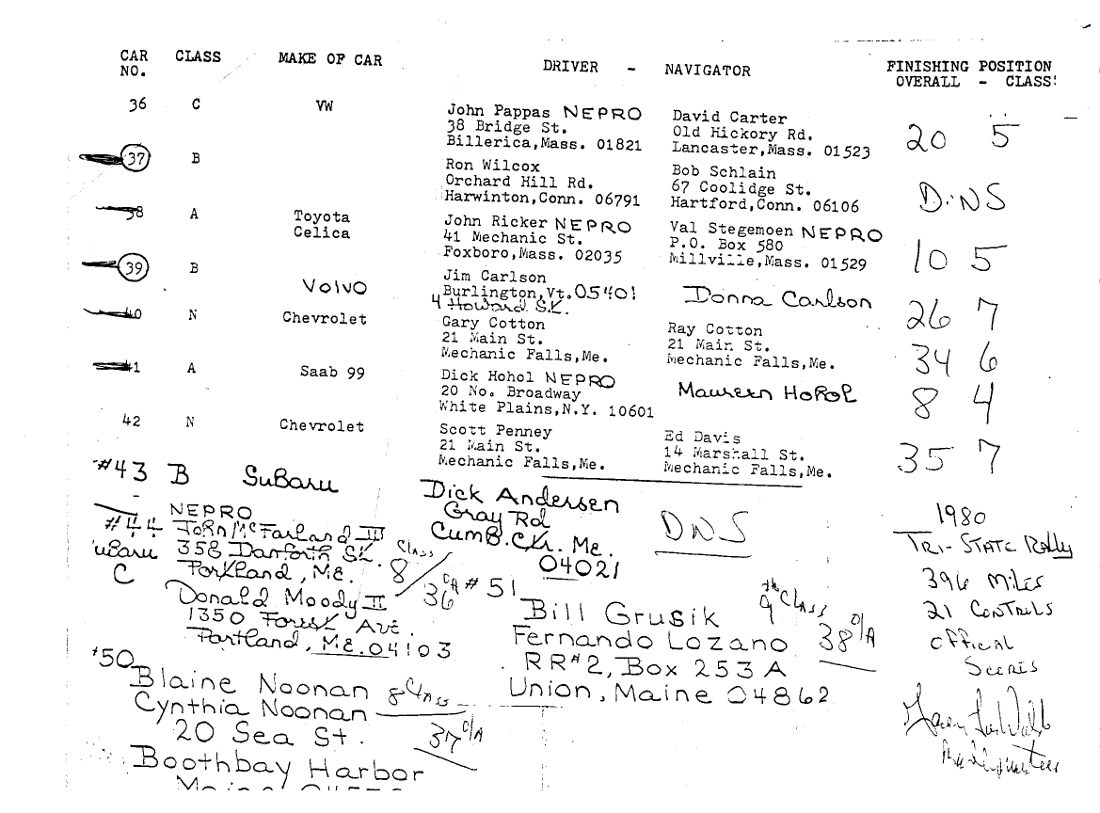 CAR NO. CLASS MAKE OF CAR DRIVER - NAVIGATOR FINISHING POSITION
OVERALL - CLASS
36 C VW John Pappas NEPRO David Carter 20 5
38 Bridge St. Old Hickory Rd.
Billerica,Mass. 01821 Lancaster,Mass. 01523
37 B Ron Wilcox Bob Schlain DNS
Orchard Hill Rd. 67 Coolidge St.
Harwinton,Conn. 06791 Hartford,Conn. 06106
38 A Toyota John Ricker NEPRO Val Stegemoen NEPRO 10 5
Celica 41 Mechanic St. P.O. Box 580
Foxboro,Mass. 02035 Millville,Mass. 01529
39 B Volvo Jim Carlson Donna Carlson 26 7
Burlington,Vt. 05401
4 Howard St.
40 N Chevrolet Gary Cotton Ray Cotton 34 6
21 Main St. 21 Main St.
Mechanic Falls,Me. Mechanic Falls,Me.
41 A Saab 99 Dick Hohol NEPRO Maureen Hohol 8 4
20 No. Broadway
White Plains,N.Y. 10601
42 N Chevrolet Scott Penney Ed Davis 35 7
21 Main St. 14 Marshall St.
Mechanic Falls,Me. Mechanic Falls,Me.
#43 B SuBaru Dick Andersen DNS
Gray Rd
CumB. Ctr. Me.
04021
NEPRO
#44 John McFarland III
uBaru 358 Danforth St. Class 8
C Portland, ME. O/A 36
Donald Moody II
1350 Forest Ave.
Portland, ME. 04103
#50
Blaine Noonan 8 Class
Cynthia Noonan
20 Sea St. 37 O/A
Boothbay Harbor
#51
Bill Grusik 9th Class
Fernando Lozano 38 O/A
RR#2, Box 253A
Union, Maine 04862
1980
TRI-STATE Rally
396 Miles
21 Controls
official
Scores